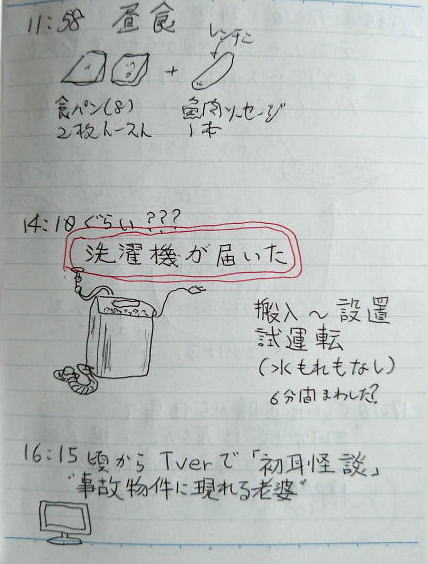 11:58 昼食
レンチン
+
食パン(8) 魚肉ソーセージ
2枚トースト 1本
14:10ぐらい???
洗濯機が届いた
搬入〜設置
試運転
(水もれもなし)
6分間まわした?
16:15 頃から Tverで「初耳怪談」
"事故物件に現れる老婆"